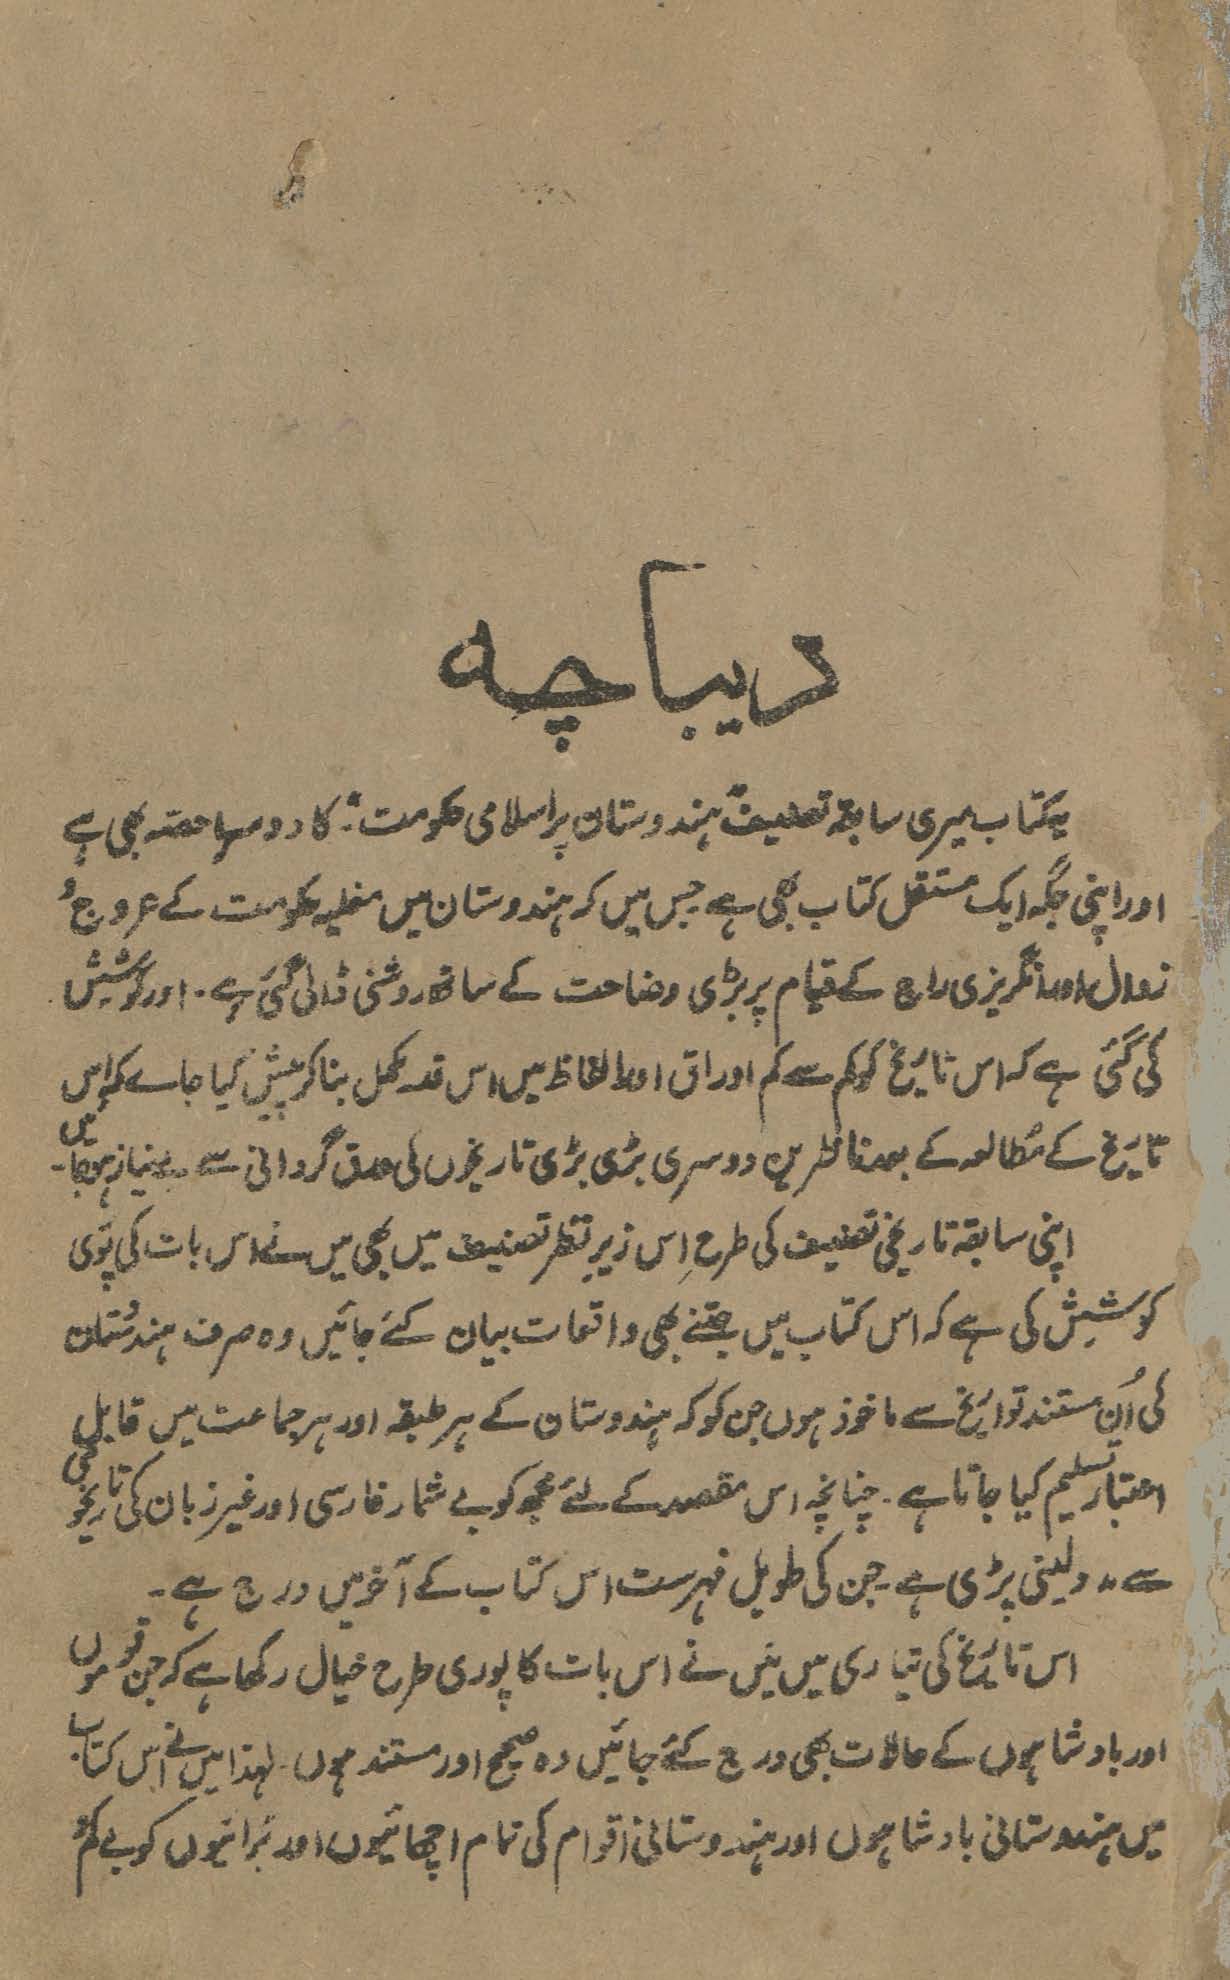 دیباچہ
یہ کتاب میری سابقہ تصنیف "ہندوستان پر اسلامی حکومت" کا دوسرا حصّہ بھی ہے
اور اپنی جگہ ایک مستقل کتاب بھی ہے جس میں کہ ہندوستان میں مغلیہ حکومت کے عروج و
زوال اور انگریزی راج کے قیام پر بڑی وضاحت کے ساتھ روشنی ڈالی گئی ہے۔ اور کوشش
کی گئی ہے کہ اس تاریخ کو کم سے کم اوراق اور الفاظ میں اس قدر مکمل بنا کر پیش کیا جائے کہ اس
تاریخ کے مُطالعہ کے بعد ناظرین دوسری بڑی بڑی تاریخوں کی ورق گردانی سے بے نیاز ہو جائیں۔
اپنی سابقہ تاریخی تصنیف کی طرح اِس زیرِ نظر تصنیف میں بھی میں نے اس بات کی پُوری
کوشش کی ہے کہ اس کتاب میں جتنے بھی واقعات بیان کئے جائیں وہ صرف ہندوُستان
کی اُن مستند تواریخ سے ماخوذ ہوں جن کو کہ ہندوستان کے ہر طبقہ اور ہر جماعت میں قابلِ
اعتبار تسلیم کیا جاتا ہے۔ چنانچہ اس مقصد کے لئے مجھ کو بے شمار فارسی اور غیر زبان کی تاریخوں
سے مدد لینی پڑی ہے۔ جن کی طویل فہرست اس کتاب کے آخر میں درج ہے۔
اس تاریخ کی تیاری میں مَیں نے اس بات کا پوری طرح خیال رکھا ہے کہ جن قوموں
اور بادشاہوں کے حالات بھی درج کئے جائیں وہ صحیح اور مستند ہوں۔ لہذا میں نے اس کتاب
میں ہندوستانی بادشاہوں اور ہندوستانی اقوام کی تمام اچھائیوں اور بُرائیوں کو بے کم و